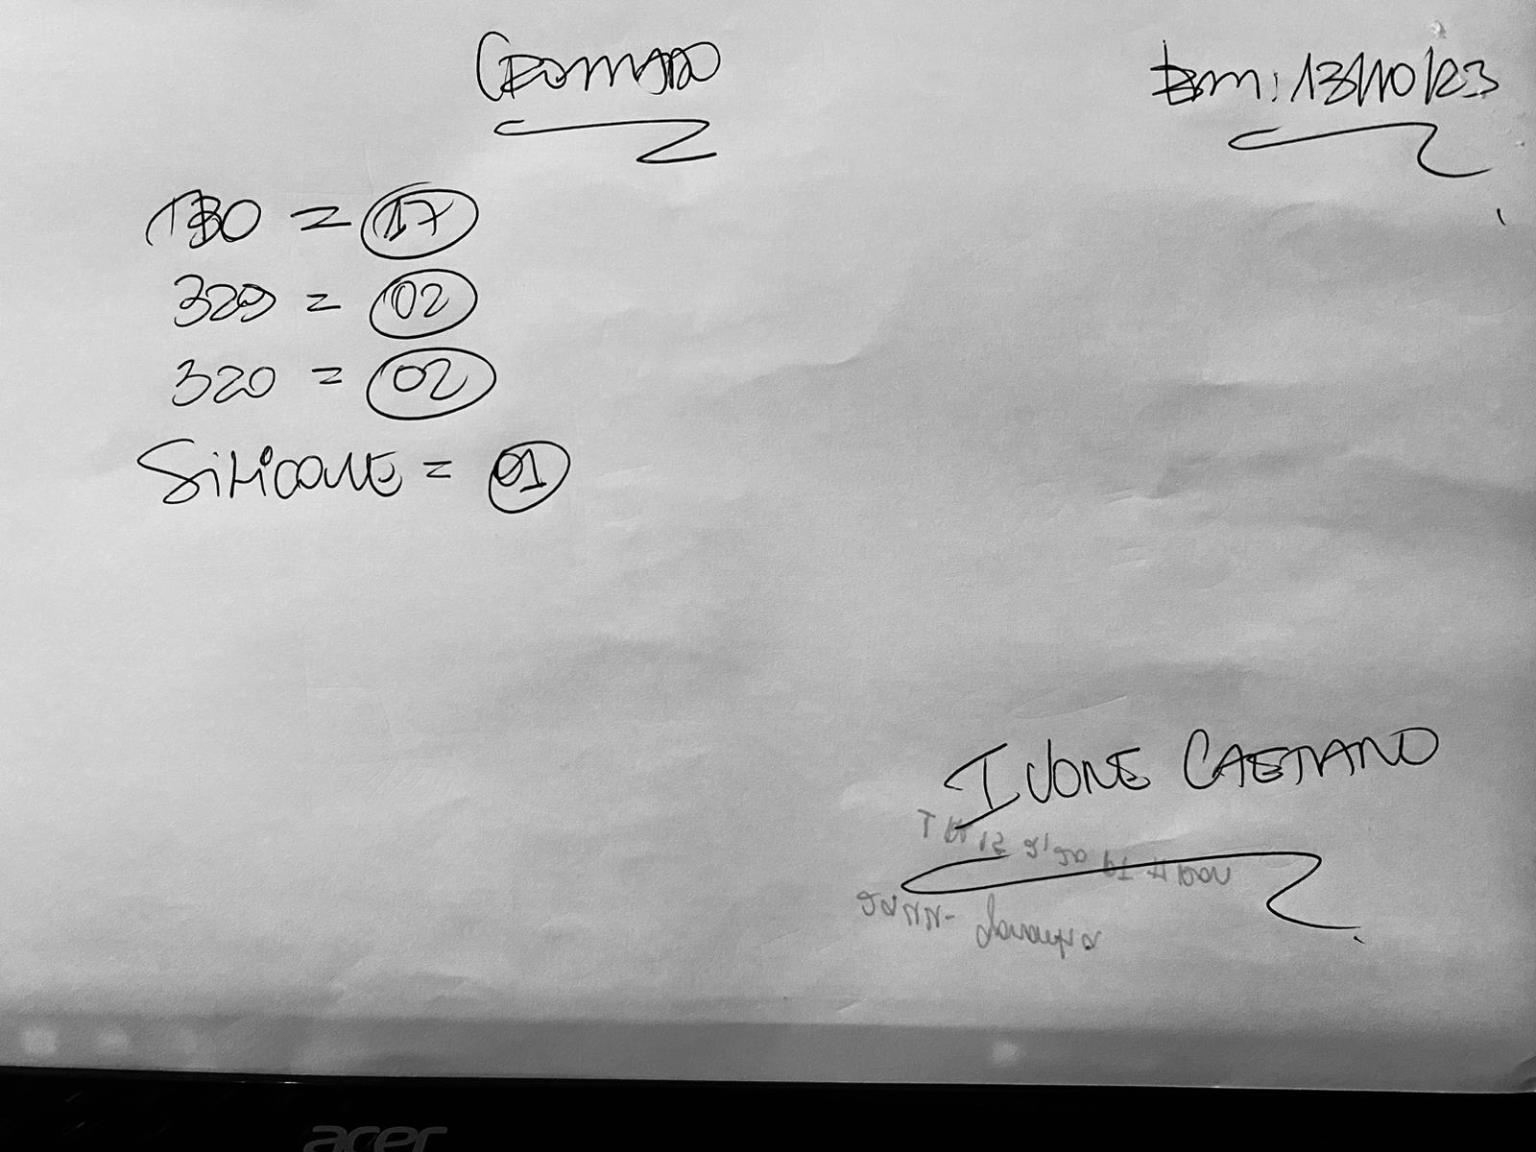 CROMADO
Em: 13/10/23
130 = 17
320 = 02
320 = 02
SiliCONE = 01
IVONE CAETANO
acer